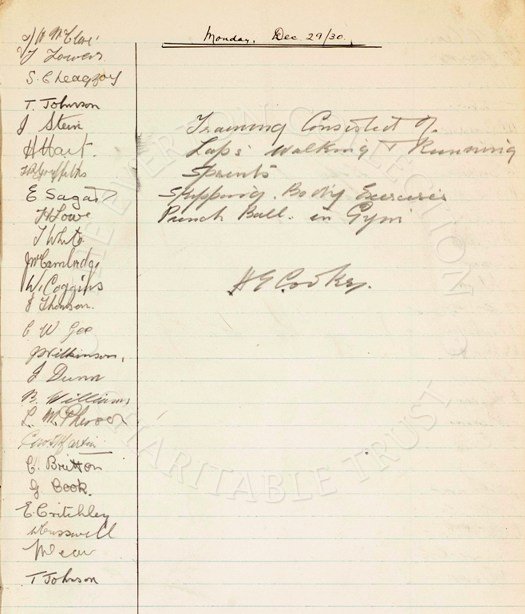 Monday. Dec 29/30.
J. W. McClure
T Lowers
T. Johnson
J Stein
H Hart.
Griffiths
E Sagar
H Lowe
T White
J McCambridge
W. Coggins
J Thomson.
C W Gee
J Wilkinson.
J Dunn
B. Williams
L. McPherson
Geo Martin
C. Britton
G Cook.
E Critchley
W Cresswell
T Johnson
Training Consisted of
Laps. Walking & Running
Sprints
Skipping. Body Exercises
Punch Ball. in Gym
H E Cooke.
EVERTON COLLECTION
CHARITABLE TRUST